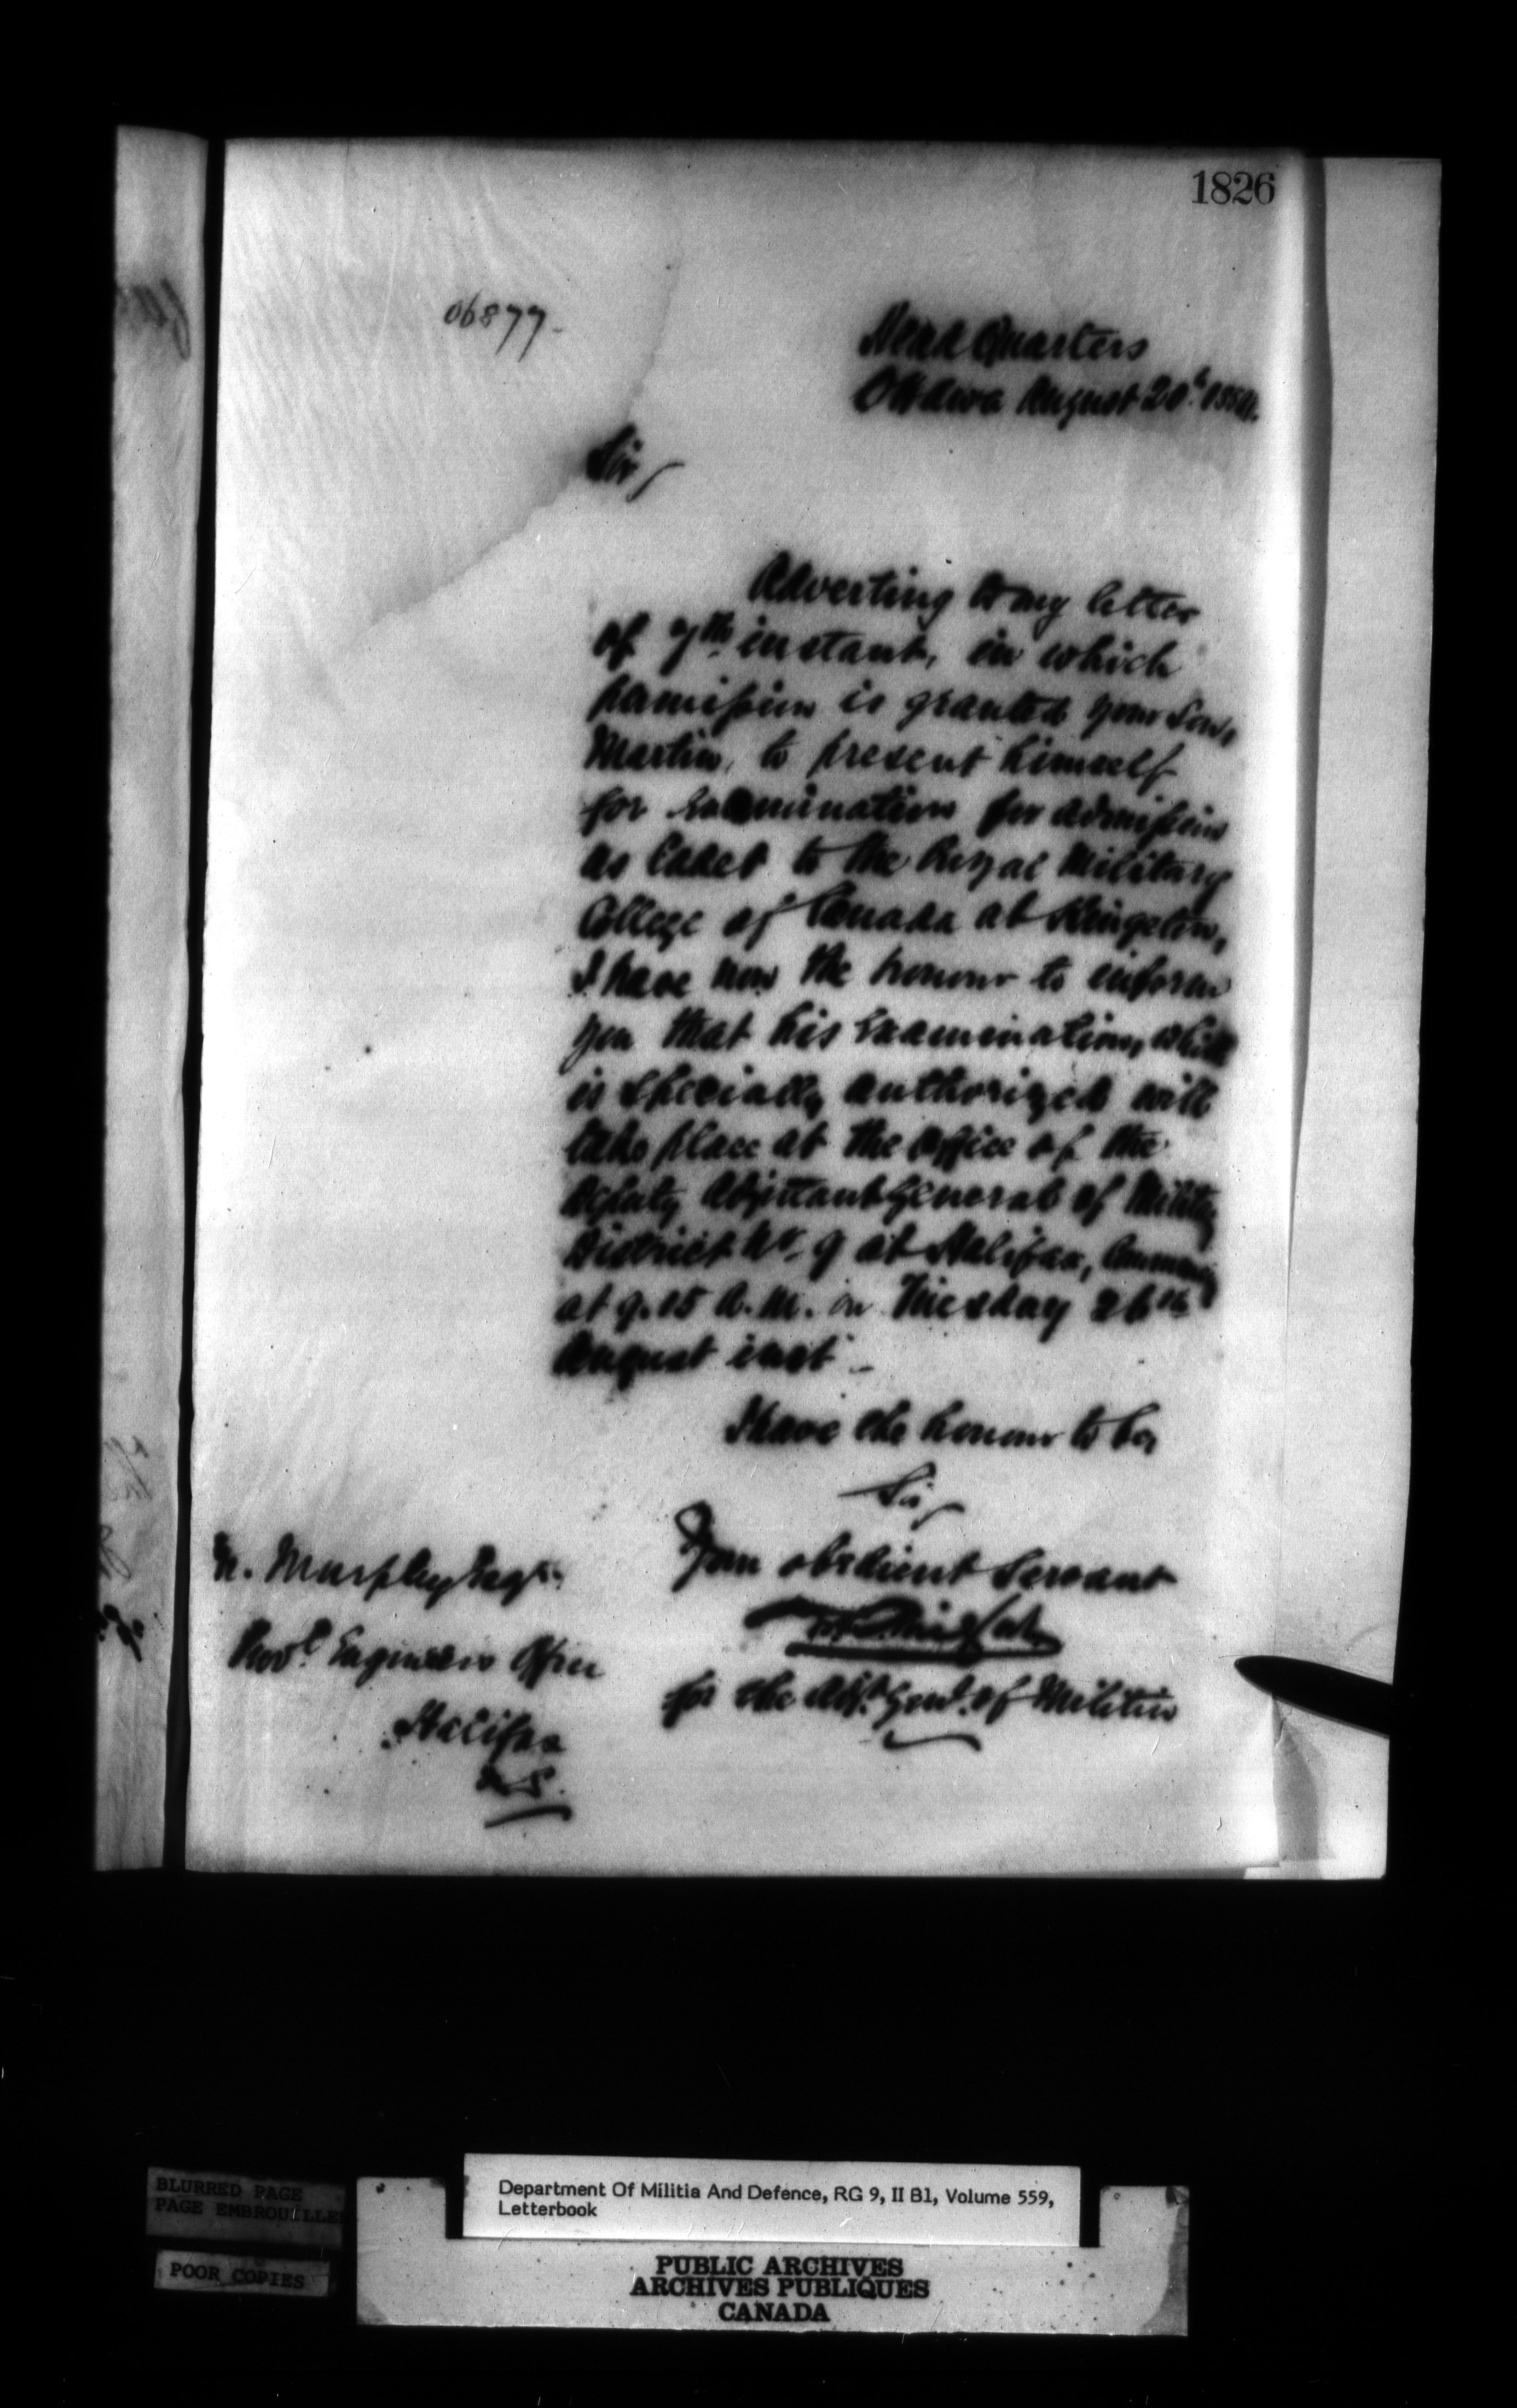 1826
06877.
Head Quarters
Ottawa August 20th 1884.
Sir,
Adverting to my letter
of 7th instant, in which
permission is granted your Son,
Martin, to present himself
for Examination for admission
as Cadet to the Royal Military
College of Canada at Kingston,
I have now the honour to inform
you that his Examination, which
is specially authorized will
take place at the office of the
Deputy Adjutant General of Military
District No. 9 at Halifax, Commencing
at 9.15 A.M. on Tuesday 26th
August inst -
I have the honour to be,
Sir,
Your obedient Servant
for the Adjt. Genl. of Militia
M. Murphy Esqr.
Provl. Engineers Office
Halifax
N.S.
BLURRED PAGE
PAGE EMBROUILLEE
POOR COPIES
Department Of Militia And Defence, RG 9, II B1, Volume 559,
Letterbook
PUBLIC ARCHIVES
ARCHIVES PUBLIQUES
CANADA